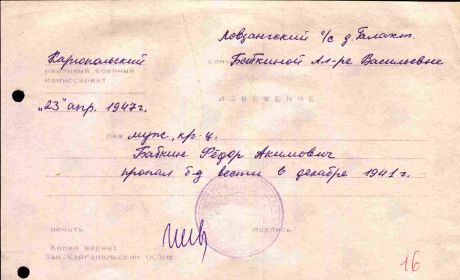 Ловзангский с/с д. Галахт.
Каргопольский
районный военный
комиссариат
кому Бабкиной Ал-ре Васильевне
ИЗВЕЩЕНИЕ
"23" апр. 1947г.
Ваш муж, кр-ц.
Бабкин Фёдор Акимович
пропал б-з вести в декабре 1941 г.
печать подпись
Копия верна:
Зав.Каргопольским ОСЗН:
16